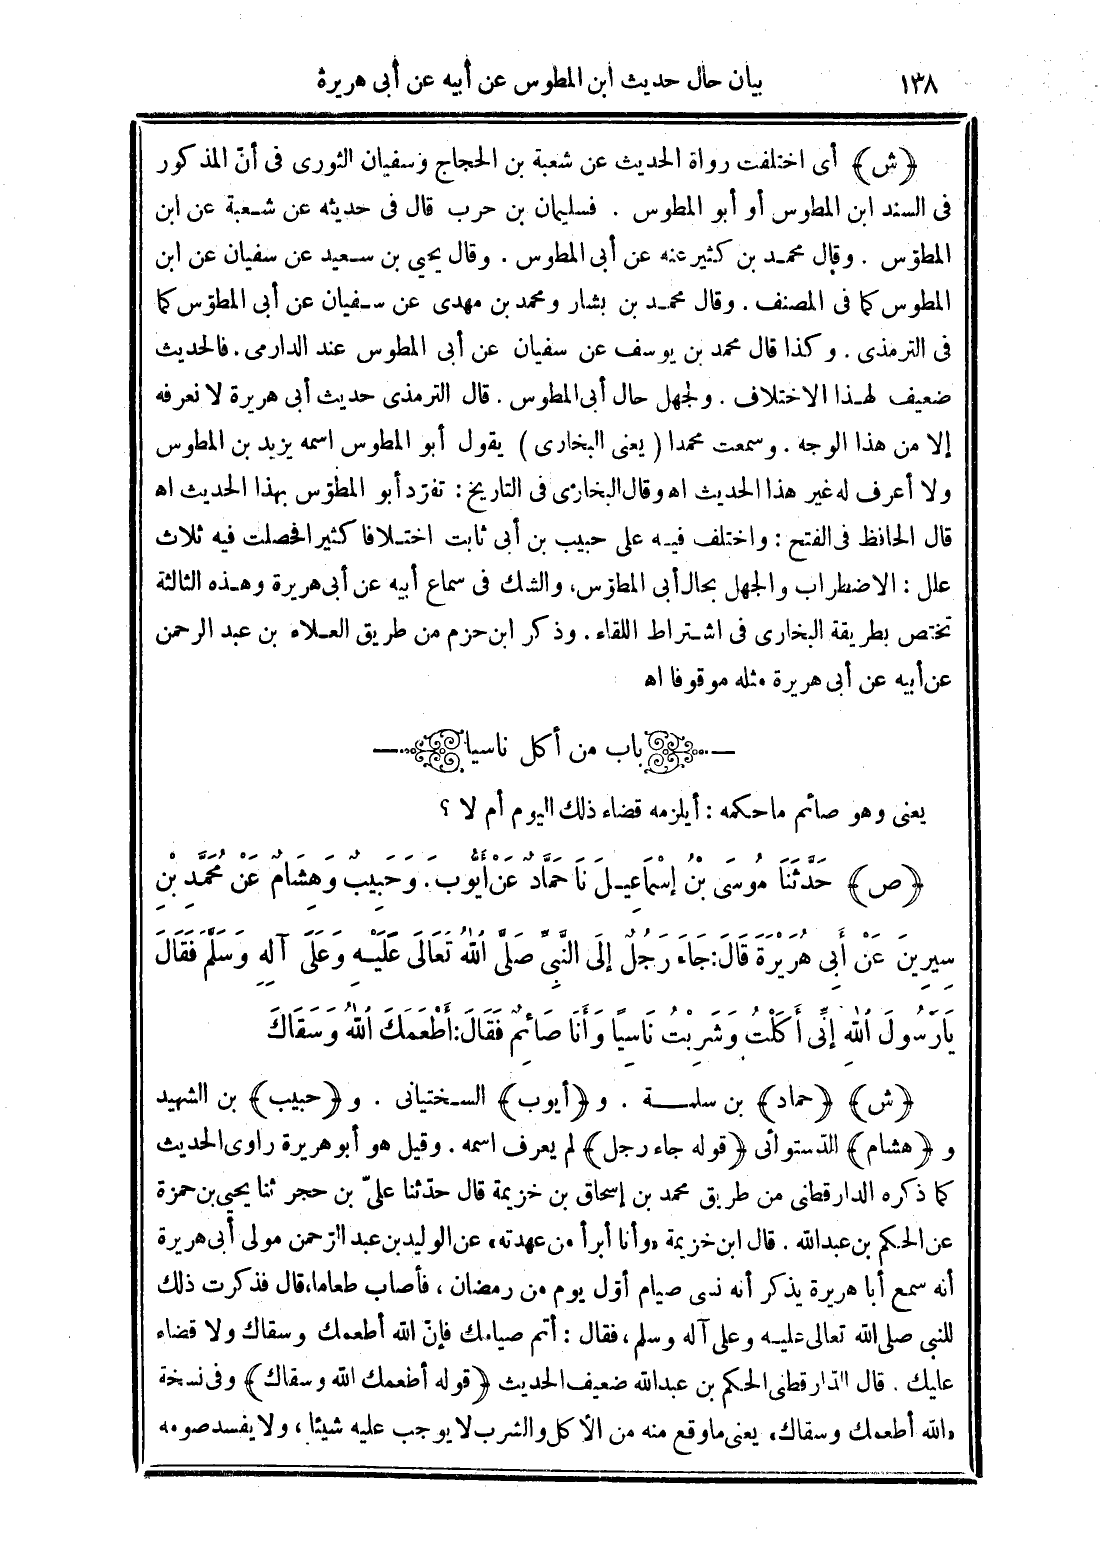 ١٣٨ بيان حال حديث ابن المطوس عن أبيه عن أبى هريرة
﴿ش﴾ أى اختلفت رواة الحديث عن شعبة بن الحجاج وسفيان الثورى فى أنّ المذكور
فى السند ابن المطوس أو أبو المطوس . فسليمان بن حرب قال فى حديثه عن شعبة عن ابن
المطوّس . وقال محمد بن كثير عنه عن أبى المطوس . وقال يحيى بن سعيد عن سفيان عن ابن
المطوس كما فى المصنف . وقال محمد بن بشار ومحمد بن مهدى عن سفيان عن أبى المطوّس كما
فى الترمذى . وكذا قال محمد بن يوسف عن سفيان عن أبى المطوس عند الدارمى . فالحديث
ضعيف لهذا الاختلاف . ولجهل حال أبى المطوس . قال الترمذى حديث أبى هريرة لا نعرفه
إلا من هذا الوجه . وسمعت محمدا ( يعنى البخارى ) يقول أبو المطوس اسمه يزيد بن المطوس
ولا أعرف له غير هذا الحديث اه وقال البخارى فى التاريخ : تفرّد أبو المطوّس بهذا الحديث اه
قال الحافظ فى الفتح : واختلف فيه على حبيب بن أبى ثابت اختلافا كثيرا فحصلت فيه ثلاث
علل : الاضطراب والجهل بحال أبى المطوّس، والشك فى سماع أبيه عن أبى هريرة وهذه الثالثة
تختص بطريقة البخارى فى اشتراط اللقاء . وذكر ابن حزم من طريق العلاء بن عبد الرحمن
عن أبيه عن أبى هريرة مثله موقوفا اه
باب من أكل ناسيا
يعنى وهو صائم ما حكمه : أيلزمه قضاء ذلك اليوم أم لا ؟
﴿ص﴾ حَدَّثَنَا مُوسَى بْنُ إِسْمَاعِيلَ نَا حَمَّادٌ عَنْ أَيُّوبَ . وَحَبِيبٌ وَهِشَامٌ عَنْ مُحَمَّدِ بْنِ
سِيرِينَ عَنْ أَبِى هُرَيْرَةَ قَالَ: جَاءَ رَجُلٌ إِلَى النَّبِىِّ صَلَّى اللهُ تَعَالَى عَلَيْهِ وَعَلَى آلِهِ وَسَلَّمَ فَقَالَ
يَارَسُولَ اللهِ إِنِّى أَكَلْتُ وَشَرِبْتُ نَاسِيًا وَأَنَا صَائِمٌ فَقَالَ: أَطْعَمَكَ اللهُ وَسَقَاكَ
﴿ش﴾ ﴿حماد﴾ بن سلمة . و﴿أيوب﴾ السختيانى . و﴿حبيب﴾ بن الشهيد
و﴿هشام﴾ الدستوائى ﴿قوله جاء رجل﴾ لم يعرف اسمه . وقيل هو أبو هريرة راوى الحديث
كما ذكره الدارقطنى من طريق محمد بن إسحاق بن خزيمة قال حدّثنا علىّ بن حجر ثنا يحيى بن حمزة
عن الحكم بن عبدالله . قال ابن خزيمة «وأنا أبرأ من عهدته» عن الوليد بن عبد الرحمن مولى أبى هريرة
أنه سمع أبا هريرة يذكر أنه نسى صيام أوّل يوم من رمضان ، فأصاب طعاما، قال فذكرت ذلك
للنبى صلى الله تعالى عليه وعلى آله وسلم ، فقال : أتم صيامك فإنّ الله أطعمك وسقاك ولا قضاء
عليك . قال الدّارقطنى الحكم بن عبدالله ضعيف الحديث ﴿قوله أطعمك الله وسقاك﴾ وفى نسخة
«الله أطعمك وسقاك» يعنى ما وقع منه من الأكل والشرب لا يوجب عليه شيئا ، ولا يفسد صومه